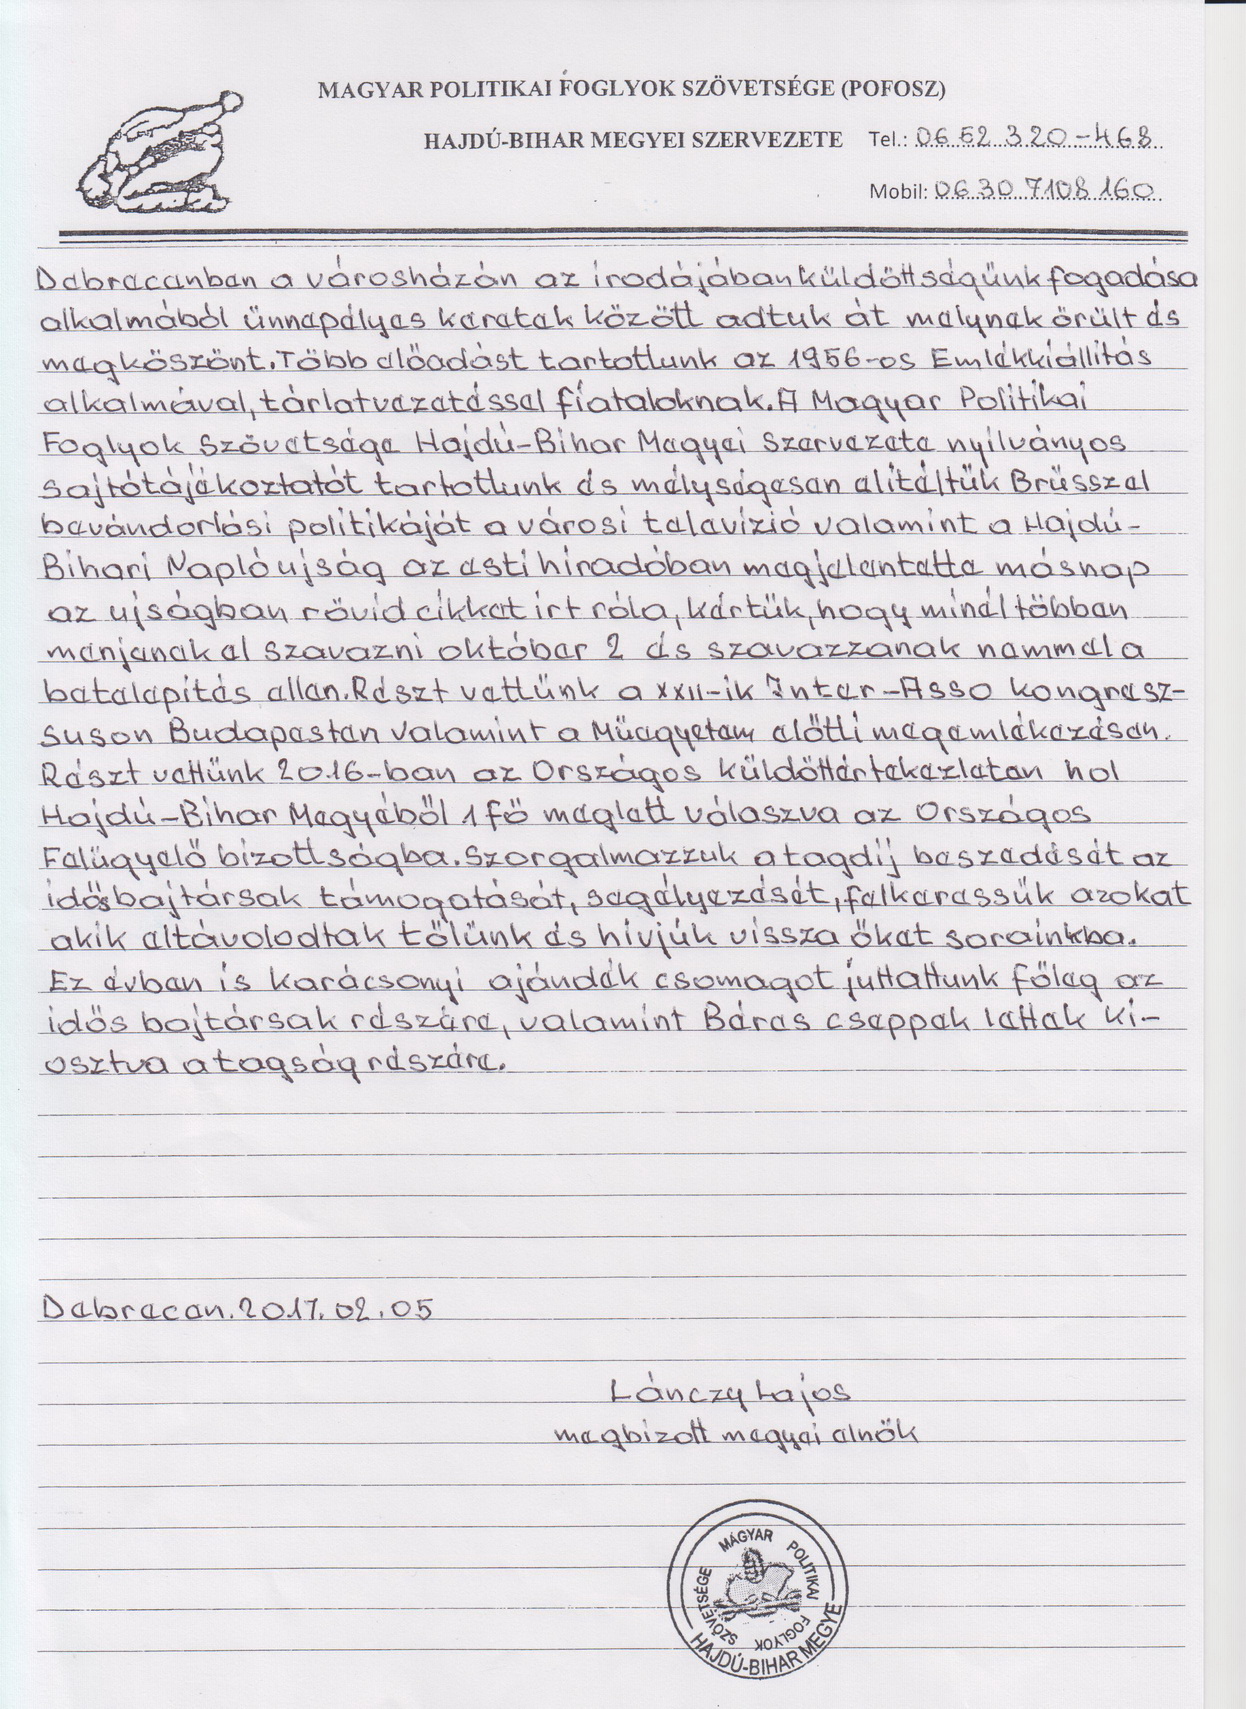 MAGYAR POLITIKAI FOGLYOK SZÖVETSÉGE (POFOSZ)
HAJDÚ-BIHAR MEGYEI SZERVEZETE Tel.: 06 52 320-468
Mobil: 06 30 7108 160
Debrecenben a városházán az irodájában küldöttségünk fogadása
alkalmából ünnepélyes keretek között adtuk át melynek örült és
megköszönt. Több előadást tartottunk az 1956-os Emlékkiállítás
alkalmával, tárlatvezetéssel fiataloknak. A Magyar Politikai
Foglyok Szövetsége Hajdú-Bihar Megyei Szervezete nyilványos
sajtótájékoztatót tartottunk és mélységesen elitéltük Brüsszel
bevándorlási politikáját a városi televízió valamint a Hajdú-
Bihari Napló ujság az esti híradóban megjelentette másnap
az ujságban rövid cikket irt róla, kértük, hogy minél többen
menjenek el szavazni október 2 és szavazzanak nemmel a
betelepítés ellen. Részt vettünk a XXII-ik Inter-Asso kongresz-
suson Budapesten valamint a Műegyetem előtti megemlékezésen.
Részt vettünk 2016-ban az Országos küldöttértekezleten hol
Hajdú-Bihar Megyéből 1 fő meglett válaszva az Országos
Felügyelő bizottságba. Szorgalmazzuk a tagdíj beszedését az
idősbajtársak támogatását, segélyezését, felkeressük azokat
akik eltávolodtak tőlünk és hívjúk vissza őket sorainkba.
Ez évben is karácsonyi ajándék csomagot juttattunk főleg az
idős bajtársak részére, valamint Béres cseppek lettek ki-
osztva a tagság részére.
Debrecen. 2017. 02. 05
Lánczy Lajos
megbizott megyei elnök
MAGYAR POLITIKAI FOGLYOK SZÖVETSÉGE
HAJDÚ-BIHAR MEGYE